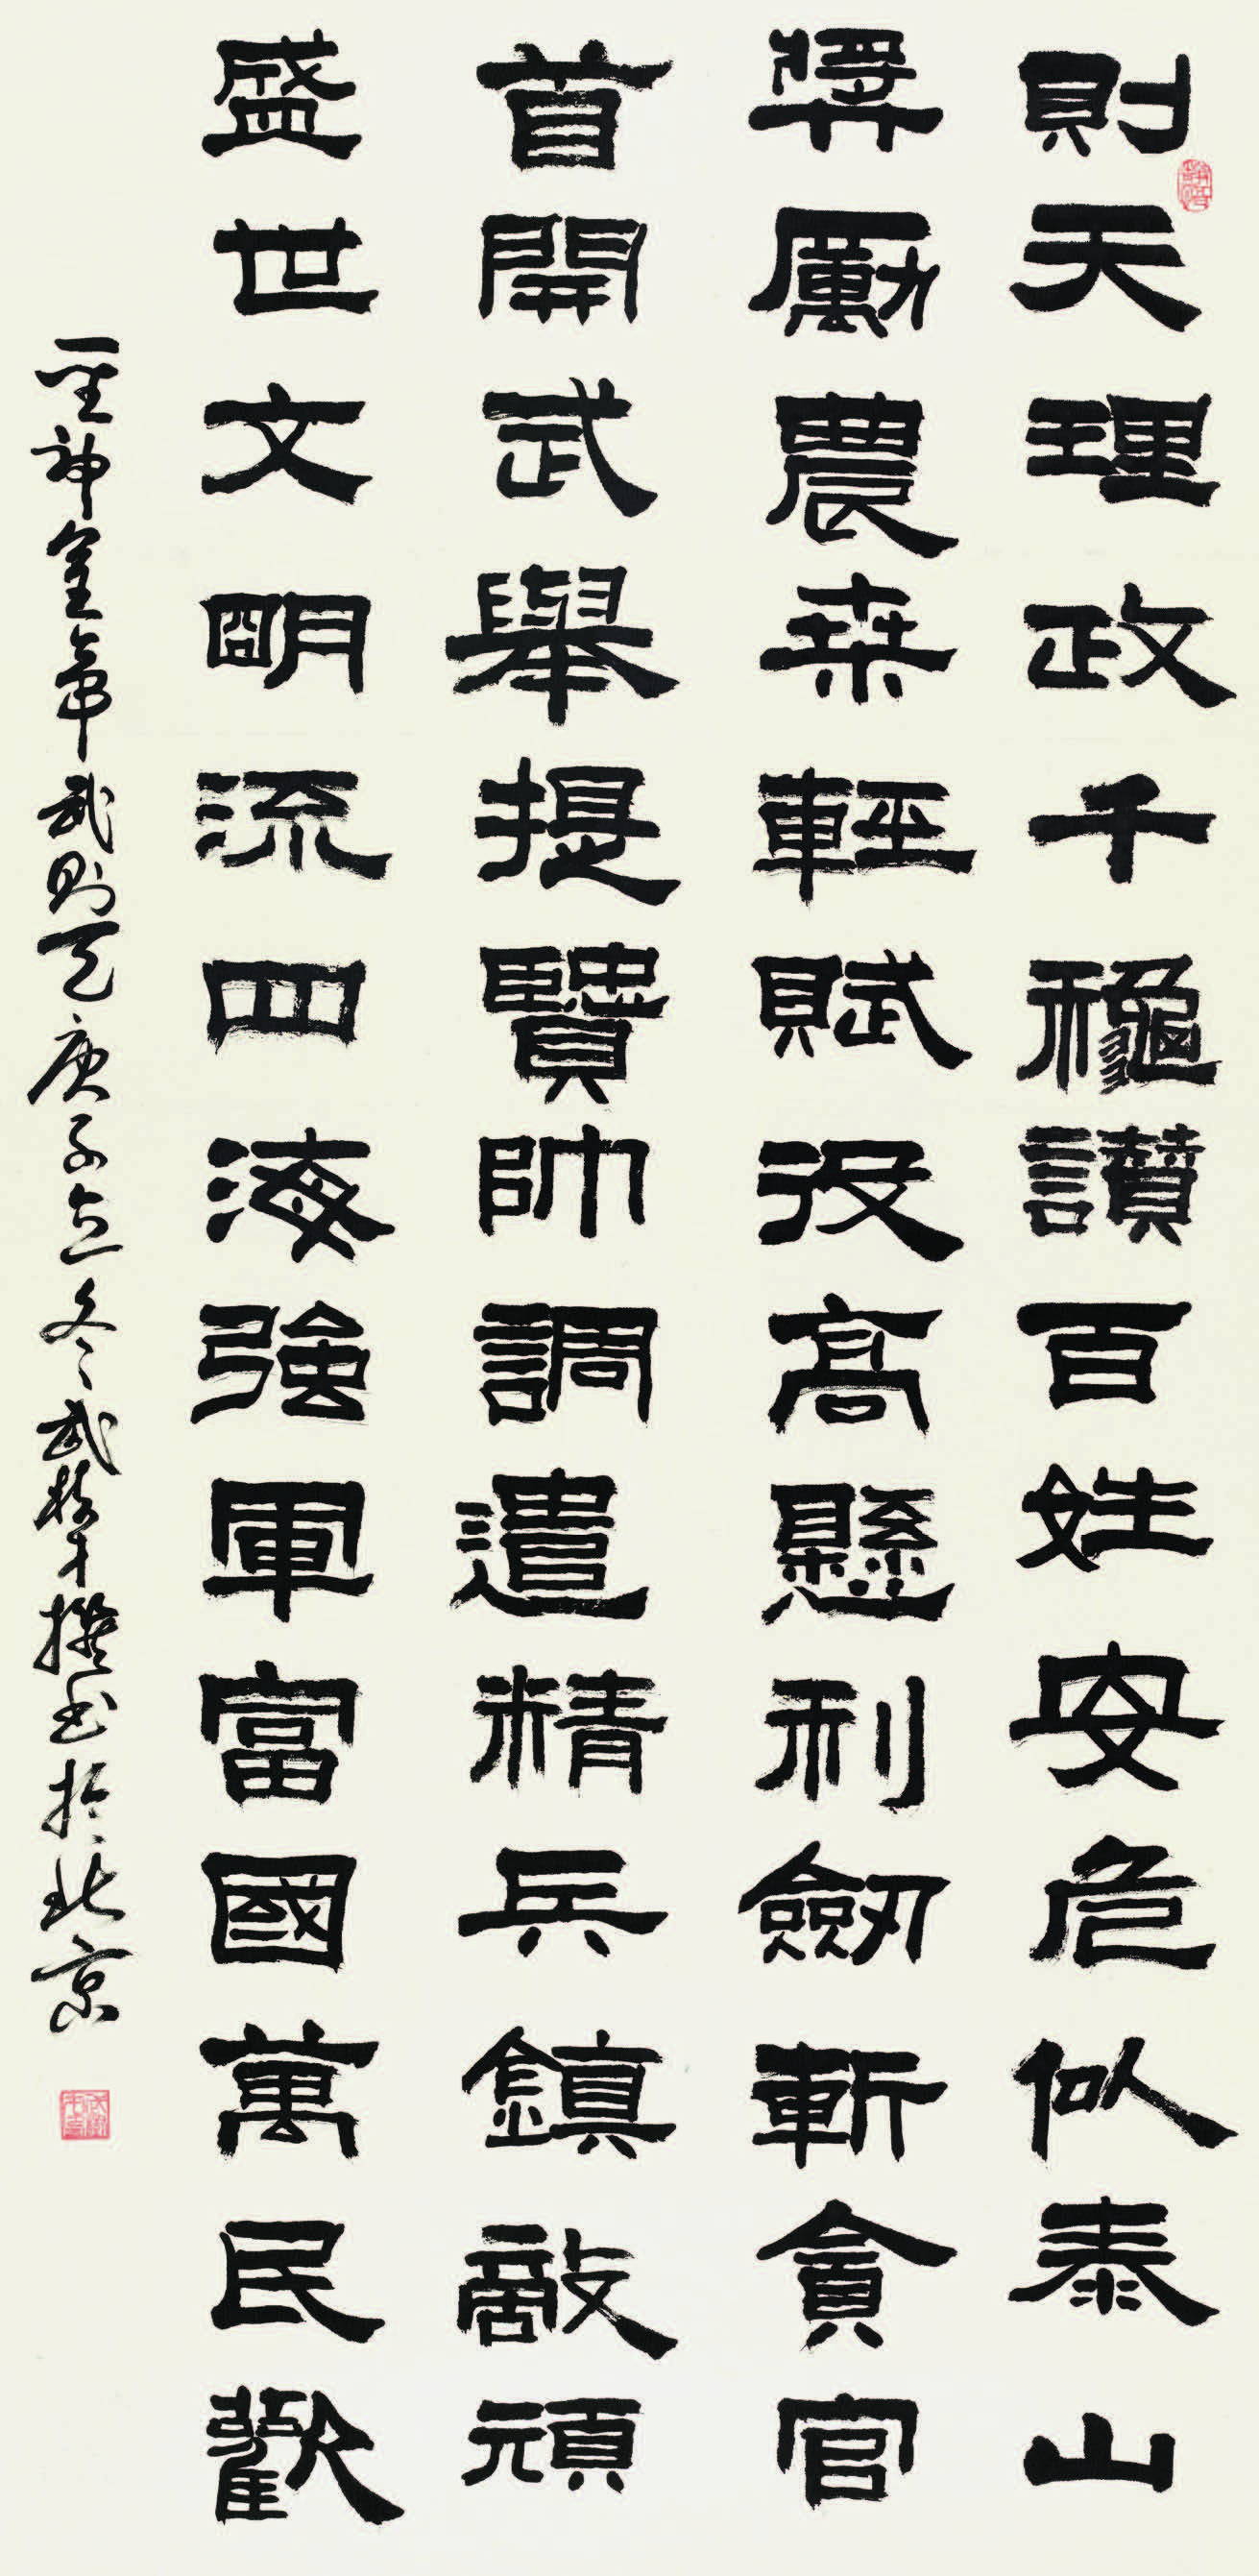 則天理政千龝讃百姓安危似泰山
獎勵農桒輕賦役高懸利劒斬貪官
首開武舉提賢帥調遣精兵鎮敵頑
盛世文明流四海強軍富國萬民歡
聖神皇帝武則天庚子立冬武樹才撰书於北京